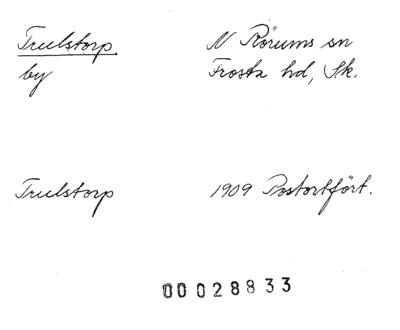 Trulstorp N Rörums sn
by Frosta hd, Sk.
Trulstorp 1909 Postortfört.
00028833